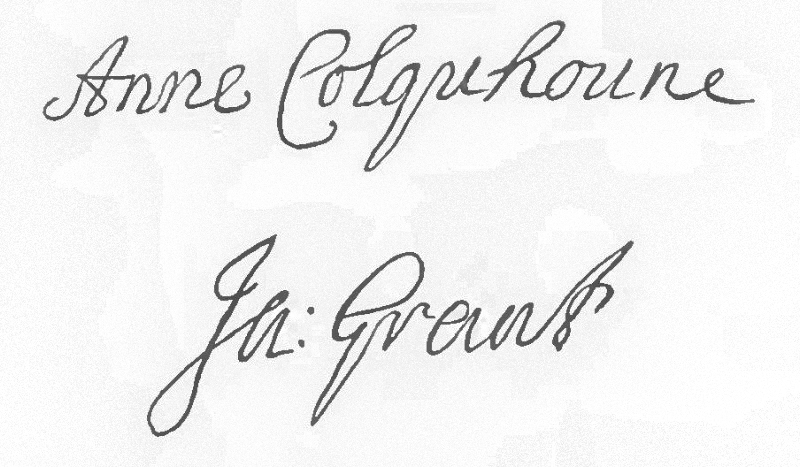 Anne Colquhoune
Ja: Grant